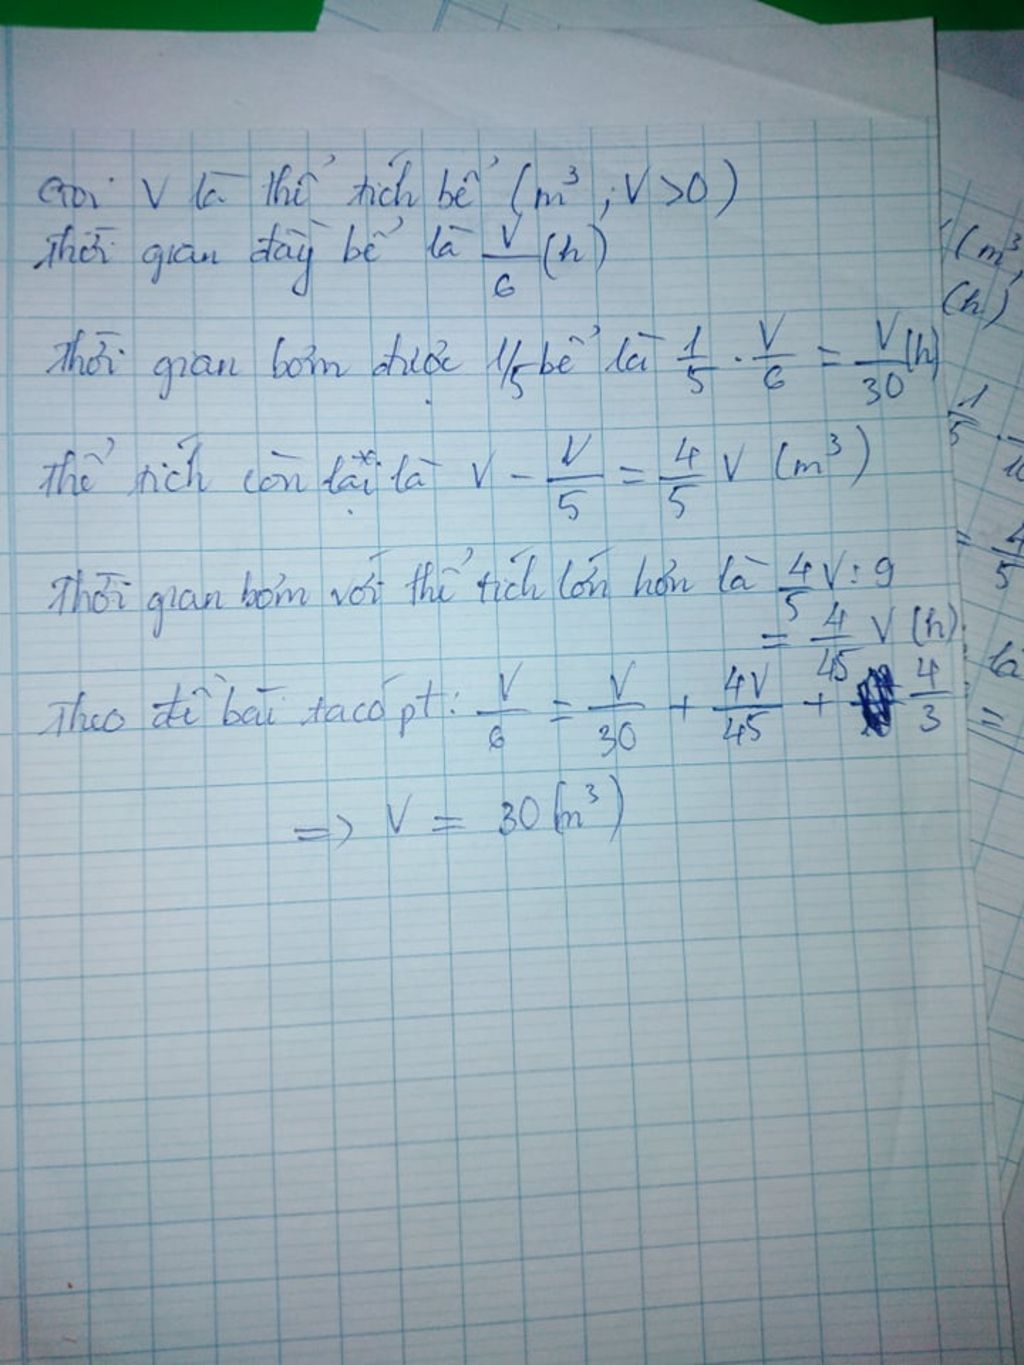 Gọi V là thể tích bể (m³; V>0)
Thời gian đầy bể là V/6 (h)
Thời gian bơm được 1/5 bể là 1/5 . V/6 = V/30 (h)
Thể tích còn lại là V - V/5 = 4/5 V (m³)
Thời gian bơm với thể tích lớn hơn là 4/5 V : 9
= 4/45 V (h)
Theo đề bài ta có pt: V/6 = V/30 + 4V/45 + 4/3
=> V = 30 (m³)
(m³,
(h)
1/5 .
= 4/5
là
=